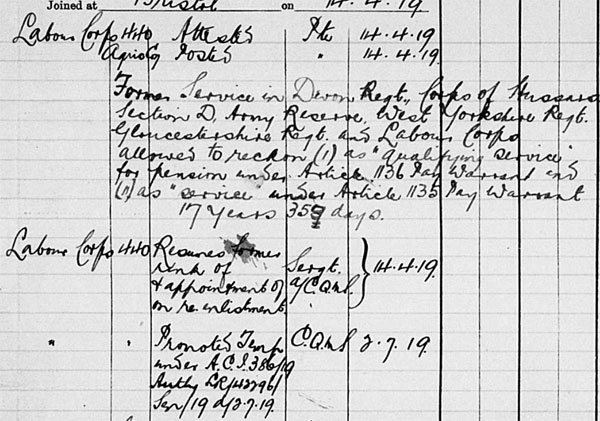 Joined at Bristol on 14.4.19
Labour Corps 440 Attested Pte 14.4.19
Agric Co Posted " 14.4.19
Former Service in Devon Regt., Corps of Hussars
Section D. Army Reserve, West Yorkshire Regt.
Gloucestershire Regt. and Labour Corps
allowed to reckon (1) as "qualifying service"
for pension under Article 1136 Pay Warrant and
(11) as "service" under Article 1135 Pay Warrant
17 Years 359 days.
Labour Corps 440 Resumes former
rank of Sergt. 14.4.19.
& appointment of a/C.Q.M.S.
on re-enlistment.
" " Promoted Temp C.Q.M.S 2.7.19
under A.C.I. 386/19
Authy LR/
Sen/19 d/2.7.19.